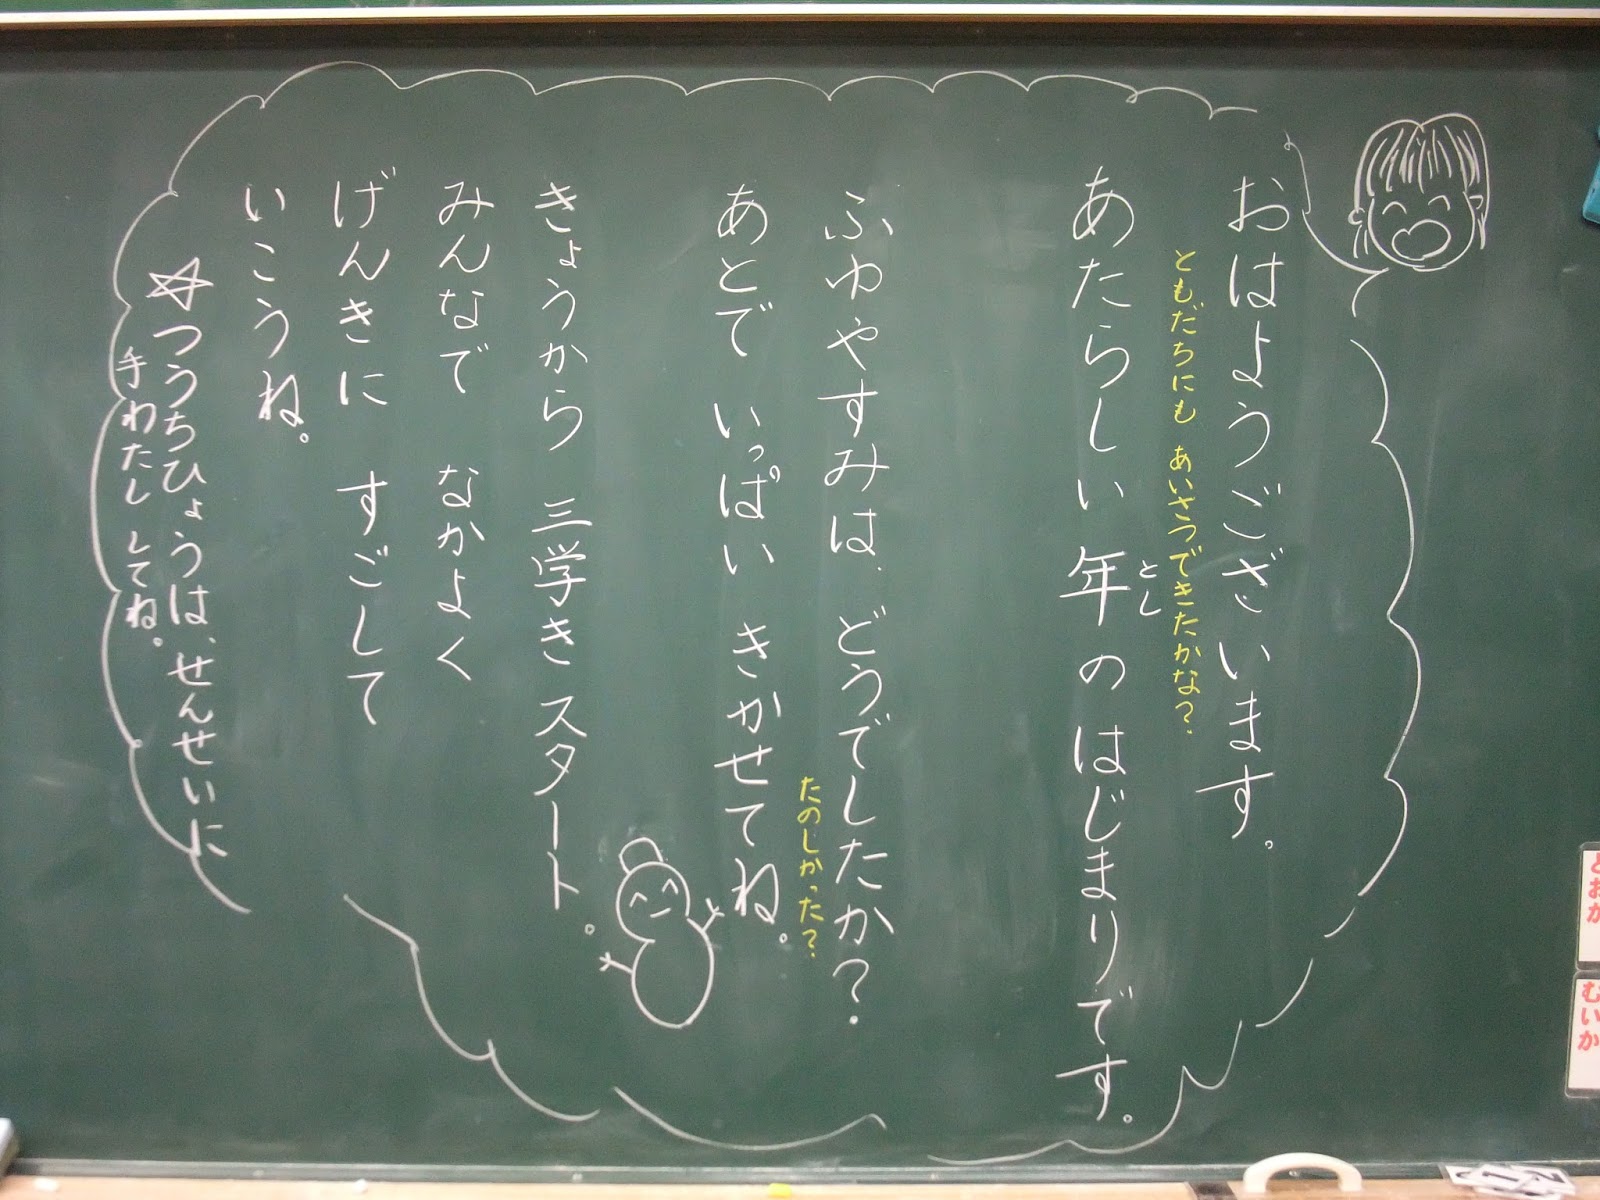 おはようございます。
ともだちにも あいさつできたかな?
あたらしい年のはじまりです。
とし
ふゆやすみは、どうでしたか?
たのしかった?
あとで いっぱい きかせてね。
きょうから 三学き スタート。
みんなで なかよく
げんきに すごして
いこうね。
☆つうちひょうは、せんせいに
手わたし してね。
とおか
むいか